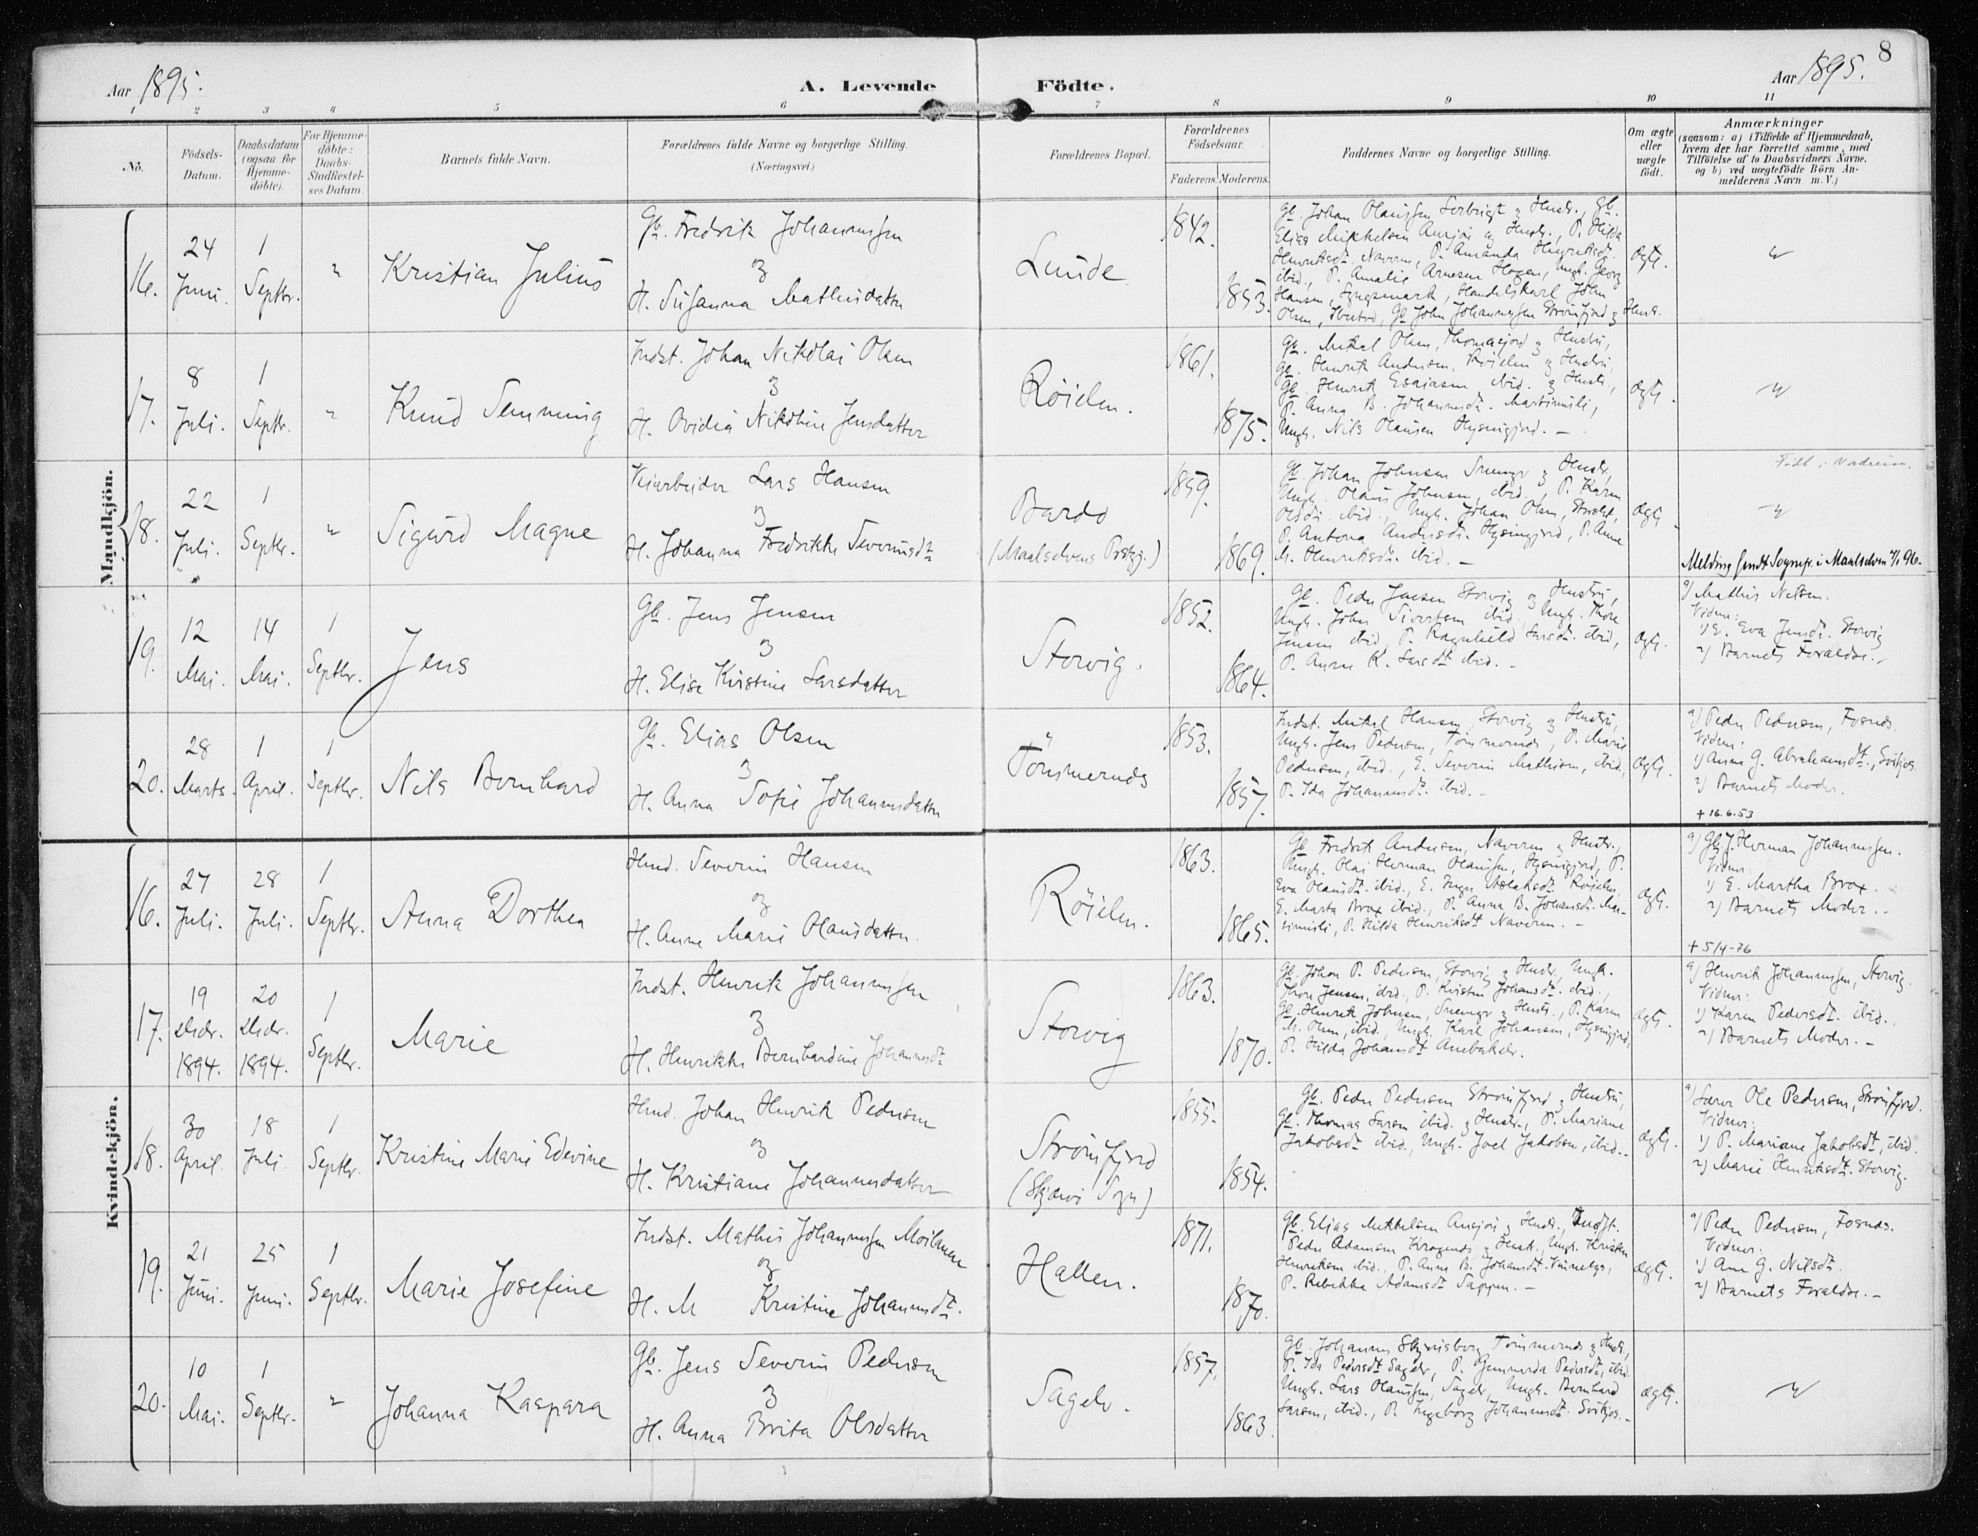 8
Aar 1895.
A. Levende Födte.
Aar 1895.
1 2 3 4 5 6 7 8 9 10 11
No.
Födsels-
Datum.
Daabsdatum
(ogsaa for
Hjemme-
döbte).
For Hjemme-
döbte:
Daabs-
Stadfæstel-
ses Datum.
Barnets fulde Navn.
Forældrenes fulde Navne og borgerlige Stilling.
(Næringsvei)
Forældrenes Bopæl.
Forældrenes
Födselsaar.
Faderens. Moderens.
Faddernes Navne og borgerlige Stilling.
Om ægte
eller
uægte
födt.
Anmærkninger
(saasom: a) i Tilfælde af Hjemmedaab,
hvem der har forrettet samme, med
Tilföielse af to Daabsvidners Navne.
og b) ved uægtefödte Börn An-
melderens Navn m. V.)
Mandkjön.
16.
24
Juni.
1
Septbr.
"
Kristian Julius
Gb. Fredrik Johannessen
og
H. Susanna Mathisdatter
Lunde
1842.
1853.
Gb. Johan Olaussen & Hustr., Gb.
Elias Mikkelsen & Hustr., P. Hilda
Henriksdt. Navaren, P. Amanda Henriksdt.
ibid., P. Amalie Arnesen Hagen, Ungk. Georg
Hansen, Handelskarl John
Olsen, Ibestad, Gb. John Johannessen Strömfjord & Hustr.
Ægte.
"
17.
8
Juli.
1
Septbr.
"
Knud Semming
Indst. Johan Nikolai Olsen
&
H. Ovidia Nikoline Jensdatter
Röielen.
1861.
1875.
Gb. Mikal Olsen, & Hustru,
Gb. Henrik Andersen, Röielen & Hustru,
Gb. Henrik Esaiasen ibid. & Hustr.,
P. Anna B. Johannesdt. Marsimili,
Ungk. Nils Olausen Hysingjord. –
Ægte.
"
18.
22
Juli.
1
Septbr.
"
Sigurd Magne
Veiarbeider Lars Hansen
&
H. Johanna Fredrikke Severinsdt
Bardo
(Maalselvens Prstgj.)
1859.
1869.
Gb. Johan Johnsen & Hustr.,
Ungk. Olaus Johnsen, ibid., P. Karen
Olsdt. ibid., Ungk. Johan Olsen,
P. Antona Andersdt. Hysingjord, P. Anne
M. Henriksdt. ibid. –
Ægte.
"
Melding sendt Sognepr. i Maalselven 96.
19.
12
Mai.
14
Mai.
1
Septbr.
Jens
Gb. Jens Jensen
&
H. Elise Kristine Larsdatter
Storvig.
1852.
1864.
Gb. Peder Jensen Storvig & Hustru,
Ungk. John Sivertsen ibid., Ungk. Thore
Jensen ibid, P. Ragnhild Larsdt. ibid,
P. Anne K. Larsdt ibid. –
Ægte.
a) Mathis Nilsen.
Vidner:
1) E. Eva Jensdt. Storvig
2) Barnets Foraldre. –
20.
28
Marts.
1
April.
1
Septbr.
Nils Bernhard
Gb. Elias Olsen
&
H. Anna Sofie Johannesdatter
Tömmernds
1853.
1857.
Indst. Mikal Hansen, Storvig & Hustru,
Ungk. Jens Pedersen, Tömmernds, P. Marie
Pedersen, ibid., E. Severin Mathisen, ibid,
P. Ida Johannesdt. ibid. –
Ægte.
a) Peder Pedersen, Fosnds.
Vidner:
1) Anne G. Abrahamsdt.,
2) Barnets Moder.
+ 16.6.53
Kvindekjön.
16.
27
Juli.
28
Juli.
1
Septbr.
Anna Dorthea
Hmd. Severin Hansen
og
H. Anne Marie Olausdatter.
Röielen.
1863.
1865.
Gb. Fredrik Andersen, Navaren & Hustr.,
Ungk. Olai Herman Olaussen, Hysingjord, P.
Eva Olausdt. ibid., E. Röielen,
E. Marta Brox ibid., P. Anna B. Johansdt. Mar-
simili, P. Hilda Henriksdt Navaren. –
Ægte.
a) Gb. J. Herman Johannessen.
Vidner:
1) E. Martha Brox.
2) Barnets Moder. –
+ 5/4-76
17.
19
Decbr.
1894.
20
Decbr.
1894.
1
Septbr.
Marie
Indst. Henrik Johannessen
&
H. Henrikke Bernhardine Johannesdt
Storvig
1863.
1870.
Gb. Johan P. Pedersen, Storvig & Hustr., Ungk.
Thore Jensen, ibid., P. Kristin Johansdt. ibid.
Gb. Henrik Johnsen, & Hustr., P. Karen
M. Olsen, ibid., Ungk. Karl Johansen, Hysingjord,
P. Hilda Johansdt
Ægte.
a) Henrik Johannessen, Storvig.
Vidner:
1) Karen Pedersdt. ibid.,
2) Barnets Moder. –
18.
30
April.
18
Juli.
1
Septbr.
Kristine Marie Edevine
Hmd. Johan Henrik Pedersen
og
H. Kristiane Johannesdatter
Strömfjord
(Skjærvö Sogn)
1855.
1854.
Gb. Peder Pedersen Strömfjord & Hustru,
Gb. Thomas Larsen ibid. & Hustr., P. Mariane
Jakobsdt ibid., Ungk. Joel Jakobsen, ibid. –
Ægte.
a) Lærer Ole Pedersen, Strömfjord.
Vidner:
1) P. Mariane Jakobsdt, ibid.
2) Marie Henriksdt. Storvig.
19.
21
Juni.
25
Juni.
1
Septbr.
Marie Josefine
Indst. Mathis Johannessen Moilanen
og
H. M Kristine Johannesdt.
Hallen.
1871.
1870.
Gb. Elias Mikkelsen & Hustr., Indst.
Peder Adamsen & Hustr., Ungk. Kristen
Henriksen ibid., P. Anna B. Johansdt.
P. Rebekka Adamsdt Sappen. –
Ægte.
a) Peder Pedersen, Fosnds.
Vidner.
1) Ane G. Nilsdt.
2) Barnets Foraldre. –
20.
10
Mai.
1
Septbr.
"
Johanna Kaspara
Gb. Jens Severin Pedersen
&
H. Anna Brita Olsdatter
Sagelv.
1857.
1863.
Gb. Johannes Tömmernds & Hustr.,
P. Ida Pedersdt Sagelv, P. Gunnerda Pedersdt, ibid.
Ungk. Lars Olaussen, Sagelv, Ungk. Bernhard
Larsen, ibid., P. Ingeborg Johannesdt.
Ægte.
"